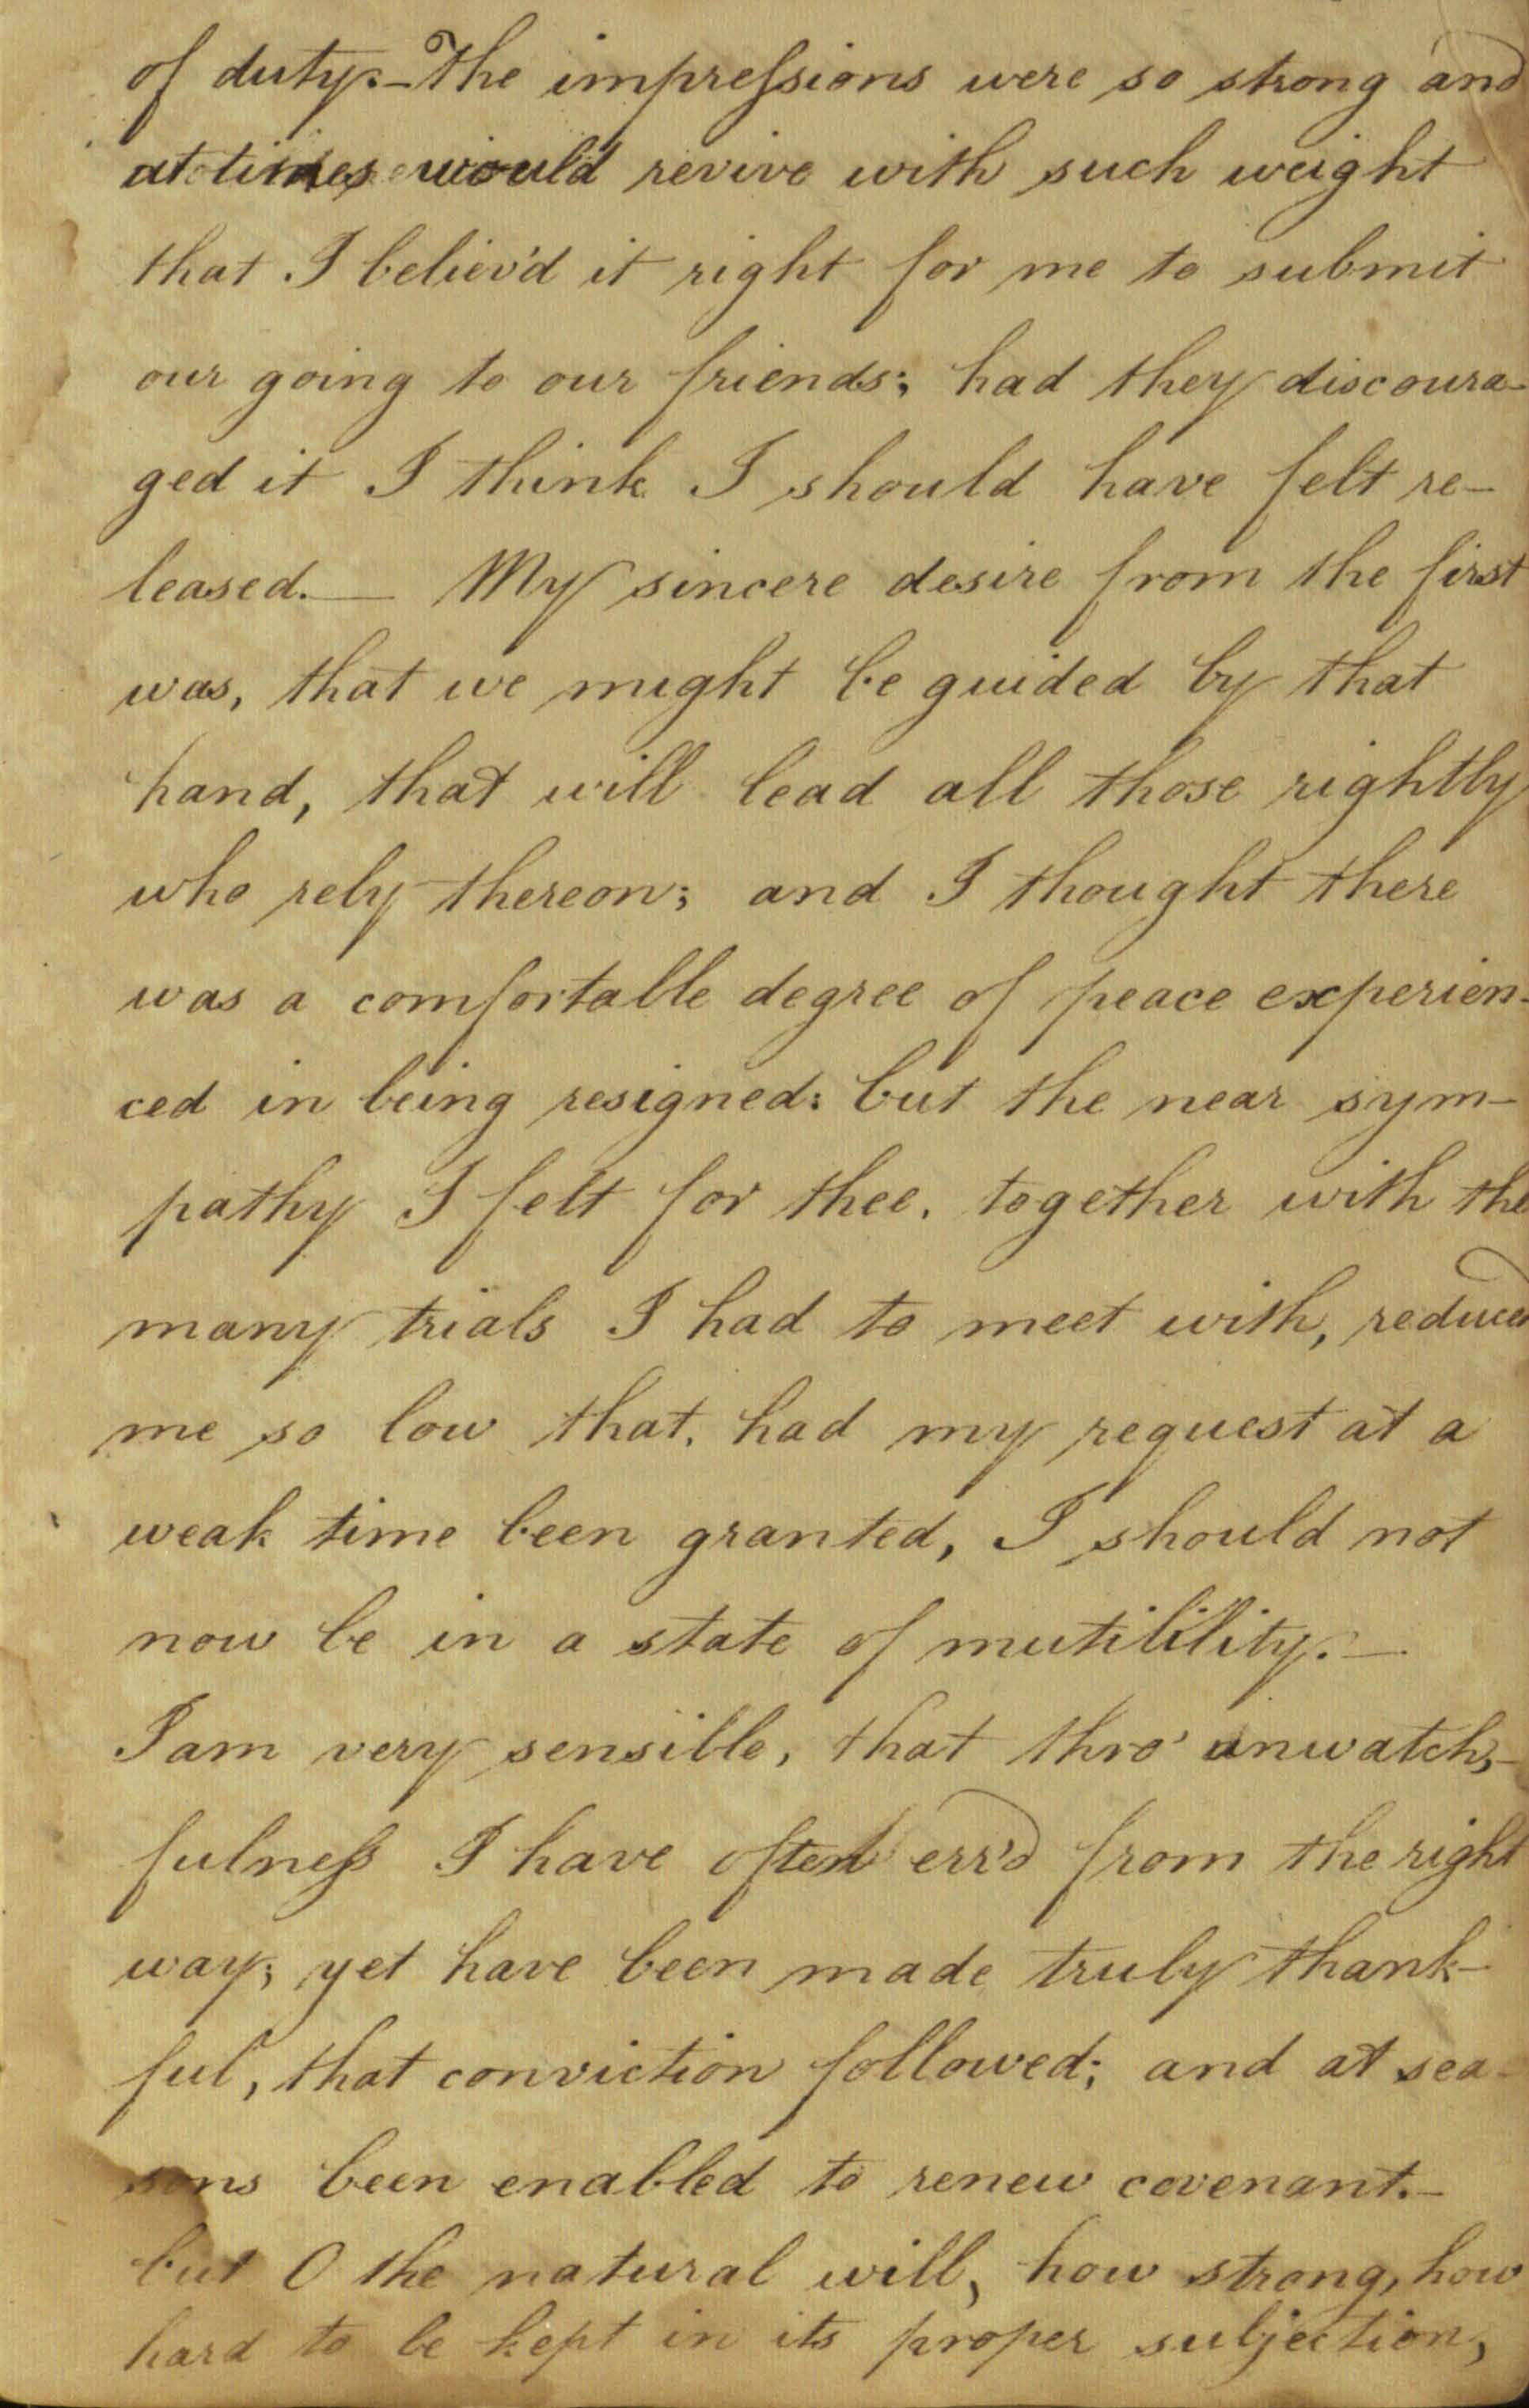 of duty.–The impressions were so strong and
at times would revive with such weight
that I believ'd it right for me to submit
our going to our friends; had they discoura-
ged it I think I should have felt re-
leased.— My sincere desire from the first
was, that we might be guided by that
hand, that will lead all those rightly
who rely thereon; and I thought there
was a comfortable degree of peace experien-
ced in being resigned: but the near sym-
pathy I felt for thee, together with the
many trials I had to meet with, reduced
me so low that, had my request at a
weak time been granted, I should not
now be in a state of mutibility.—
I am very sensible, that thro' unwatch-
fulness I have often err'd from the right
way; yet have been made truly thank-
ful, that conviction followed; and at sea-
sons been enabled to renew covenant.–
but O the natural will, how strong, how
hard to be kept in its proper subjection,